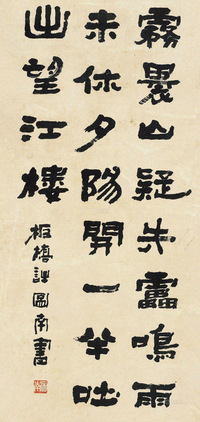 霧裹山疑失靁鳴雨
未休夕陽開一半吐
出望江樓
板橋詩圖南書